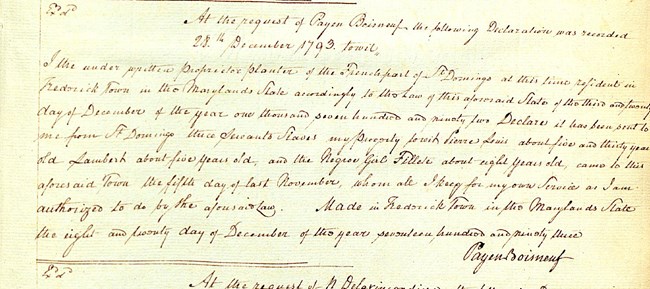 At the request of Payen Boisneuf the following Declaration was recorded
28.th December 1793. towit,
I the under written Proprietor planter of the French part of St. Domingo at this time resident in
Frederick Town in the Marylands State acordingly to the Law of this aforesaid State of the third and twenty
day of December of the year one thousand seven hundred and ninety two Declare it has been sent to
me from St. Domingo three Servants Slaves my property towit Pierre Louis about five and thirty years
old Lambert about five years old, and the Negroe Girl Fillette about eight years old, came to this
aforesaid Town the fifth day of last November, whom all I keep for my own Service as I am
authorized to do by the aforesaid Law. Made in Frederick Town in the Marylands State
the eight and twenty day of December of the year seventeen hundred and ninety three
Payen Boisneuf
At the request of